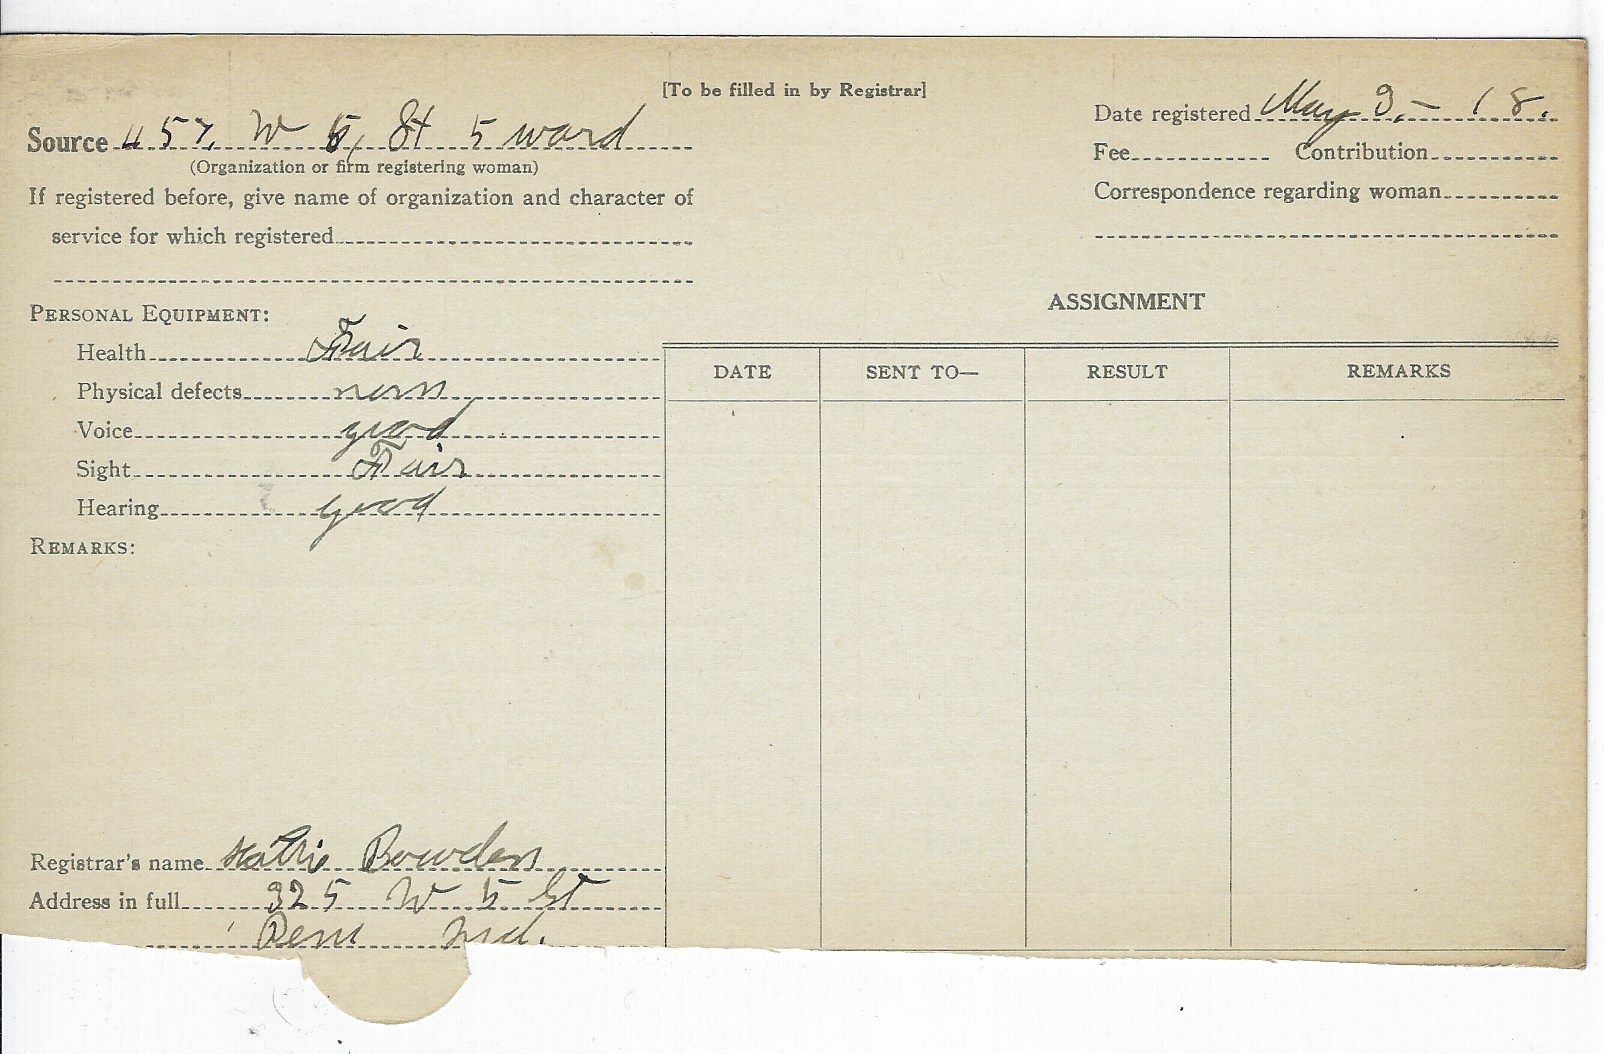 [To be filled in by Registrar]
Source 457. W 5, St 5 ward
(Organization or firm registering woman)
If registered before, give name of organization and character of
service for which registered
Date registered May 3, – 18.
Fee Contribution
Correspondence regarding woman
PERSONAL EQUIPMENT:
Health Fair
Physical defects non
Voice good
Sight Fair
Hearing good
REMARKS:
Registrar's name Hattie Bowden
Address in full 325 W 5 St
Peru Ind.
ASSIGNMENT
DATE SENT TO— RESULT REMARKS